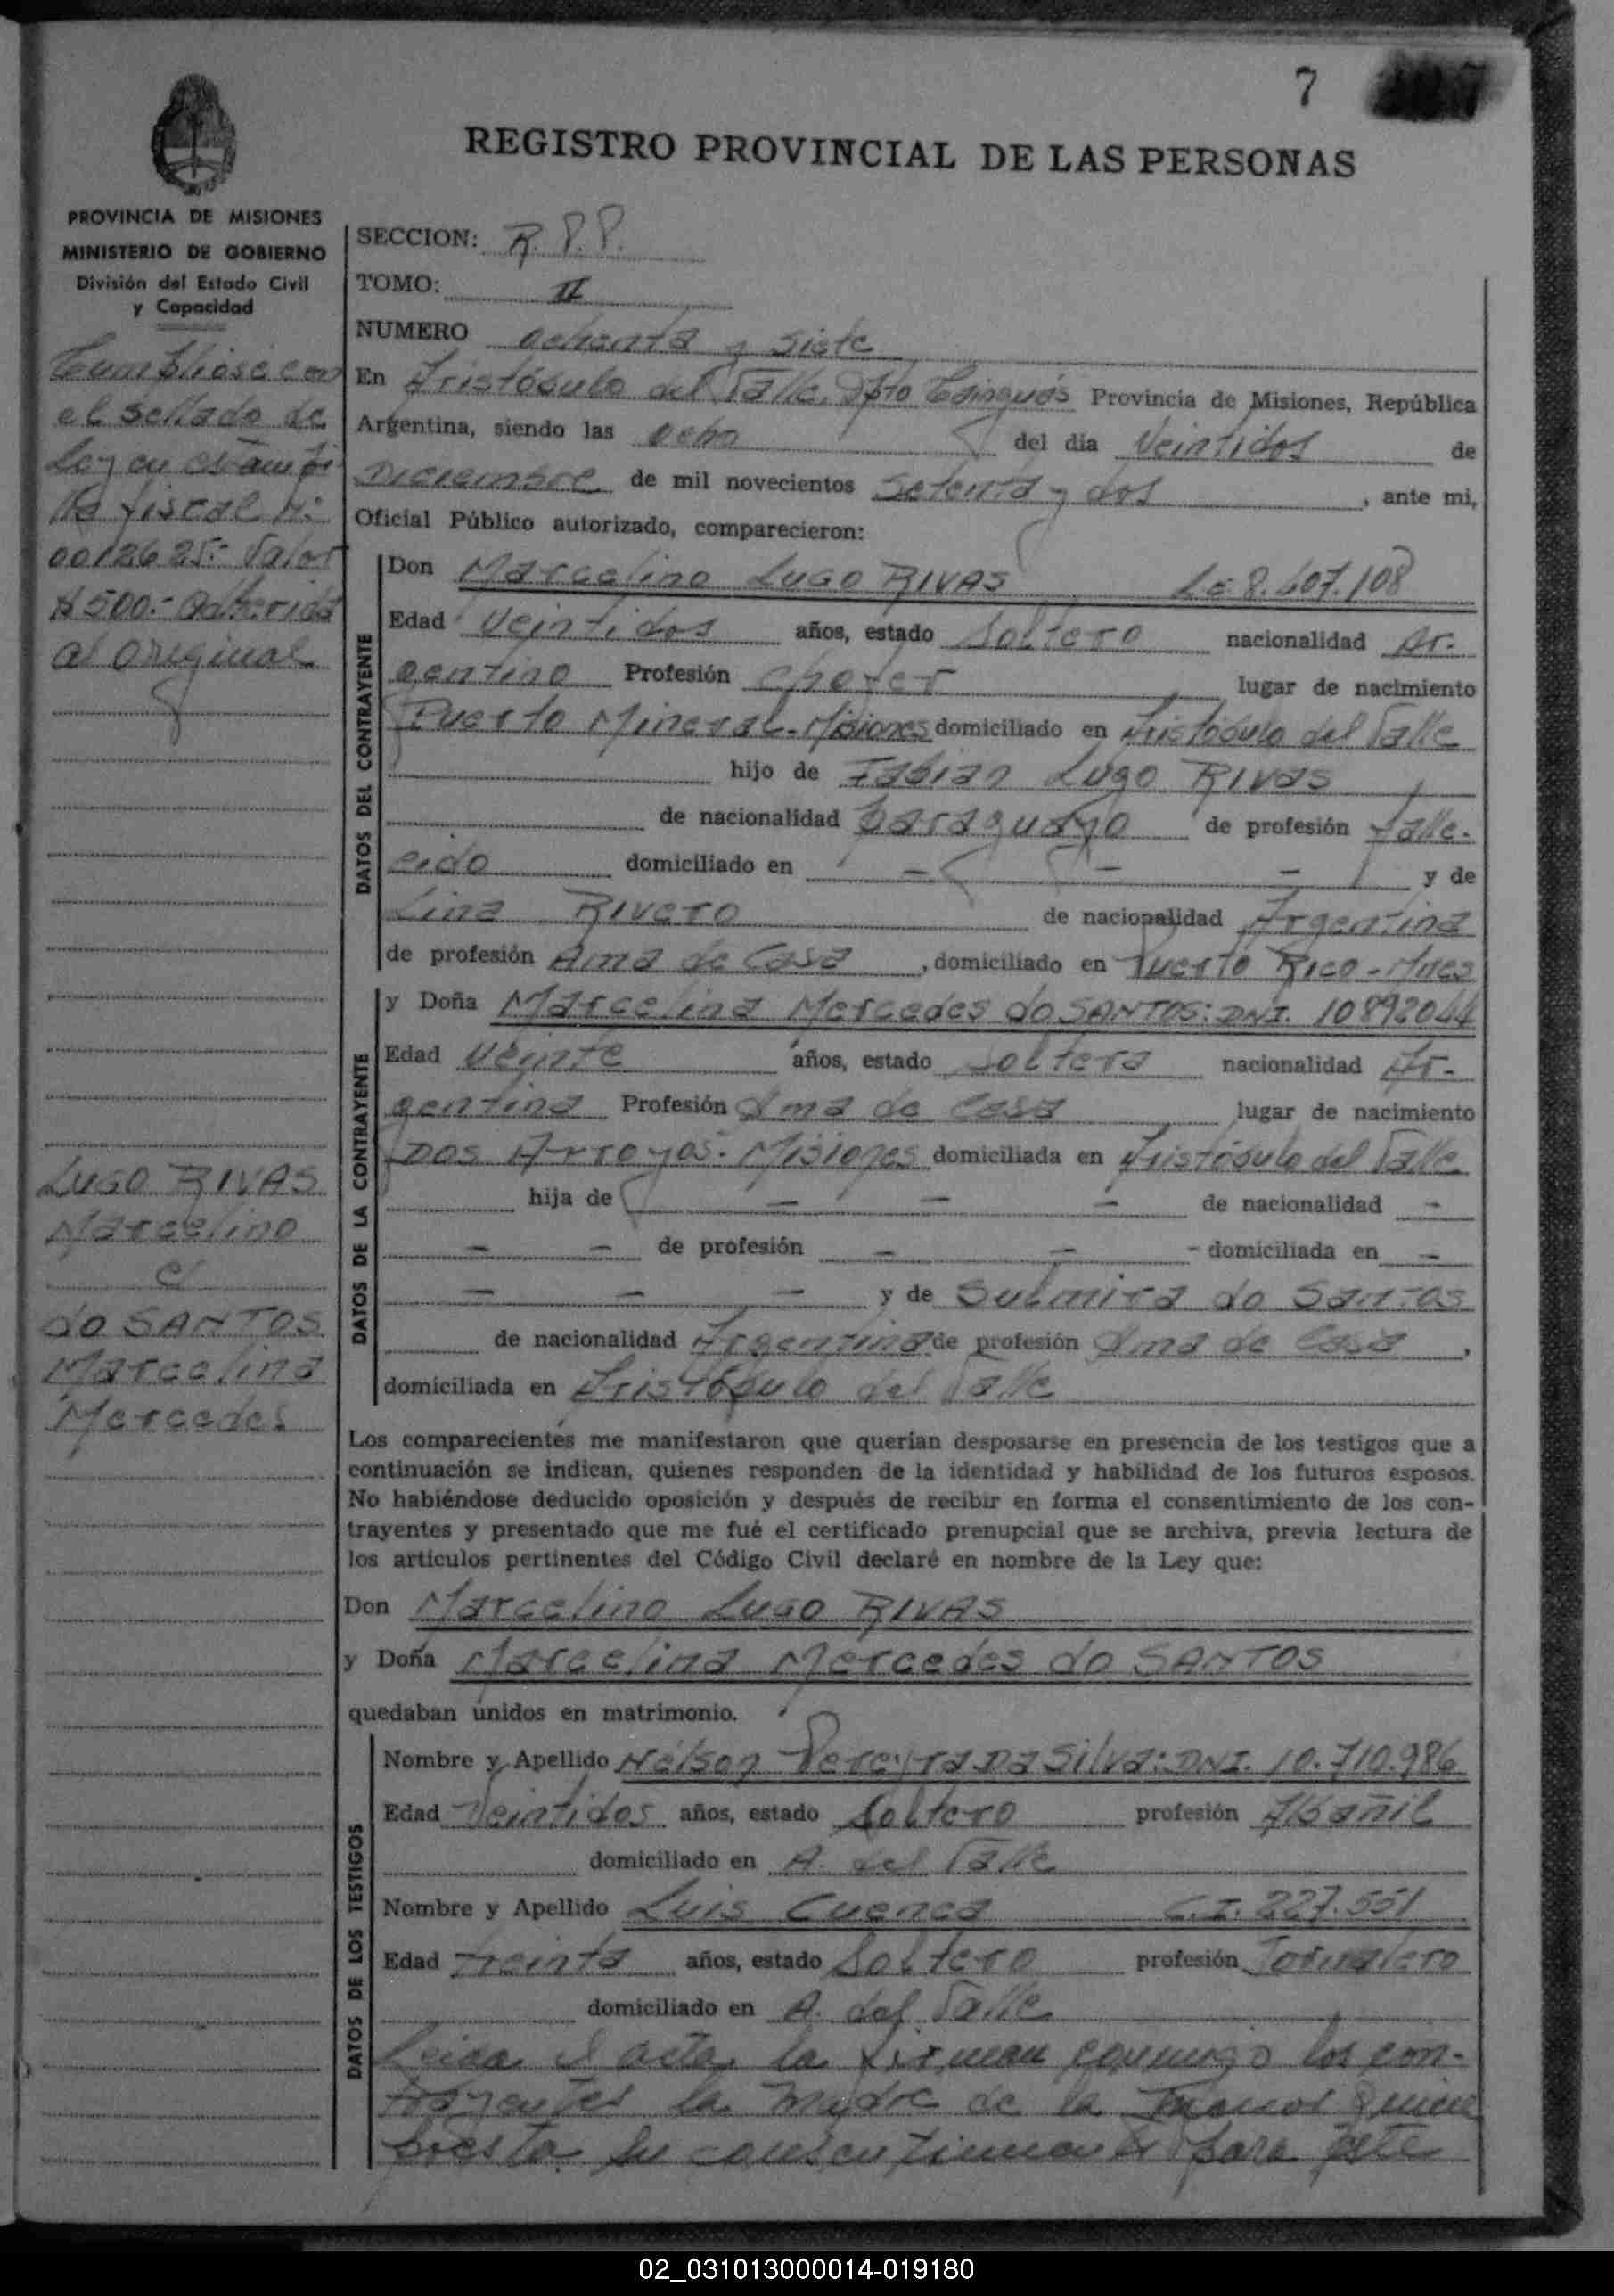 7
REGISTRO PROVINCIAL DE LAS PERSONAS
PROVINCIA DE MISIONES
MINISTERIO DE GOBIERNO
División del Estado Civil
y Capacidad
Cumplióse con
el sellado de
ley en estampi
lla fiscal Nº
0012625.- Valor
$500.- adherida
al original
LUGO RIVAS
Marcelino
c/
do SANTOS
Marcelina
Mercedes
SECCION: R.P.P.
TOMO: II
NUMERO ochenta y siete
En Aristóbulo del Valle, Dpto Cainguás Provincia de Misiones, República
Argentina, siendo las ocho del día Veintidos de
Diciembre de mil novecientos setenta y dos, ante mi,
Oficial Público autorizado, comparecieron:
DATOS DEL CONTRAYENTE
Don Marcelino LUGO RIVAS LE 8.607.108
Edad Veintidos años, estado Soltero nacionalidad Ar-
gentino Profesión chofer lugar de nacimiento
Puerto Mineral-Misiones domiciliado en Aristóbulo del Valle
hijo de Fabian Lugo RIVAS
de nacionalidad paraguayo de profesión falle-
cido domiciliado en - - - y de
Lina Rivero de nacionalidad Argentina
de profesión Ama de Casa, domiciliado en Puerto Rico-Mnes
DATOS DE LA CONTRAYENTE
y Doña Marcelina Mercedes do SANTOS: DNI. 10892044
Edad Veinte años, estado Soltera nacionalidad Ar-
gentina Profesión Ama de Casa lugar de nacimiento
Dos Arroyos-Misiones domiciliada en Aristóbulo del Valle
hija de - - - de nacionalidad -
- - de profesión - - - domiciliada en -
- - - y de Sulmira do Santos
de nacionalidad Argentina de profesión Ama de Casa,
domiciliada en Aristóbulo del Valle
Los comparecientes me manifestaron que querían desposarse en presencia de los testigos que a
continuación se indican, quienes responden de la identidad y habilidad de los futuros esposos.
No habiéndose deducido oposición y después de recibir en forma el consentimiento de los con-
trayentes y presentado que me fué el certificado prenupcial que se archiva, previa lectura de
los artículos pertinentes del Código Civil declaré en nombre de la Ley que:
Don Marcelino LUGO RIVAS
y Doña Marcelina Mercedes do SANTOS
quedaban unidos en matrimonio.
DATOS DE LOS TESTIGOS
Nombre y Apellido Nélson Pereyra Da Silva: DNI. 10.710.986
Edad Veintidos años, estado Soltero profesión Albañil
domiciliado en A. del Valle
Nombre y Apellido Luis Cuenca C.I. 227.551
Edad treinta años, estado Soltero profesión Jornalero
domiciliado en A. del Valle
Leida el acta, la firman conmigo los con-
trayentes la madre de la menor quien
presta su consentimiento para este
02_031013000014-019180